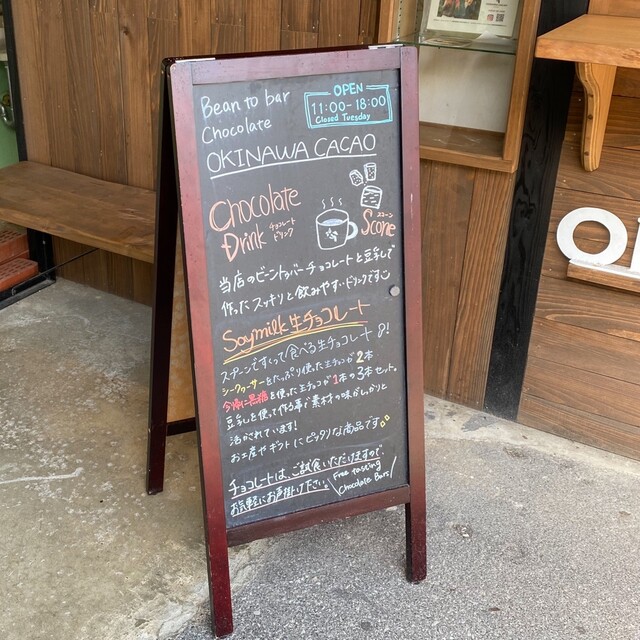 Bean to bar
Chocolate
OPEN
11:00-18:00
Closed Tuesday
OKINAWA CACAO
Chocolate
Drink
チョコレート
ドリンク
スコーン
Scone
当店のビーントゥバーチョコレートと豆乳で
作ったスッキリと飲みやすいドリンクです
Soymilk生チョコレート
スプーンですくって食べる生チョコレート!
シークヮーサーをたっぷり使った生チョコが2本
今帰仁黒糖を使った生チョコが1本の3本セット。
豆乳を使って作る事で素材の味がしっかりと
活かされています!
お土産やギフトにピッタリな商品です
チョコレートは、ご試食いただけますので、
お気軽にお声掛け下さい。
Free tasting
Chocolate Bars